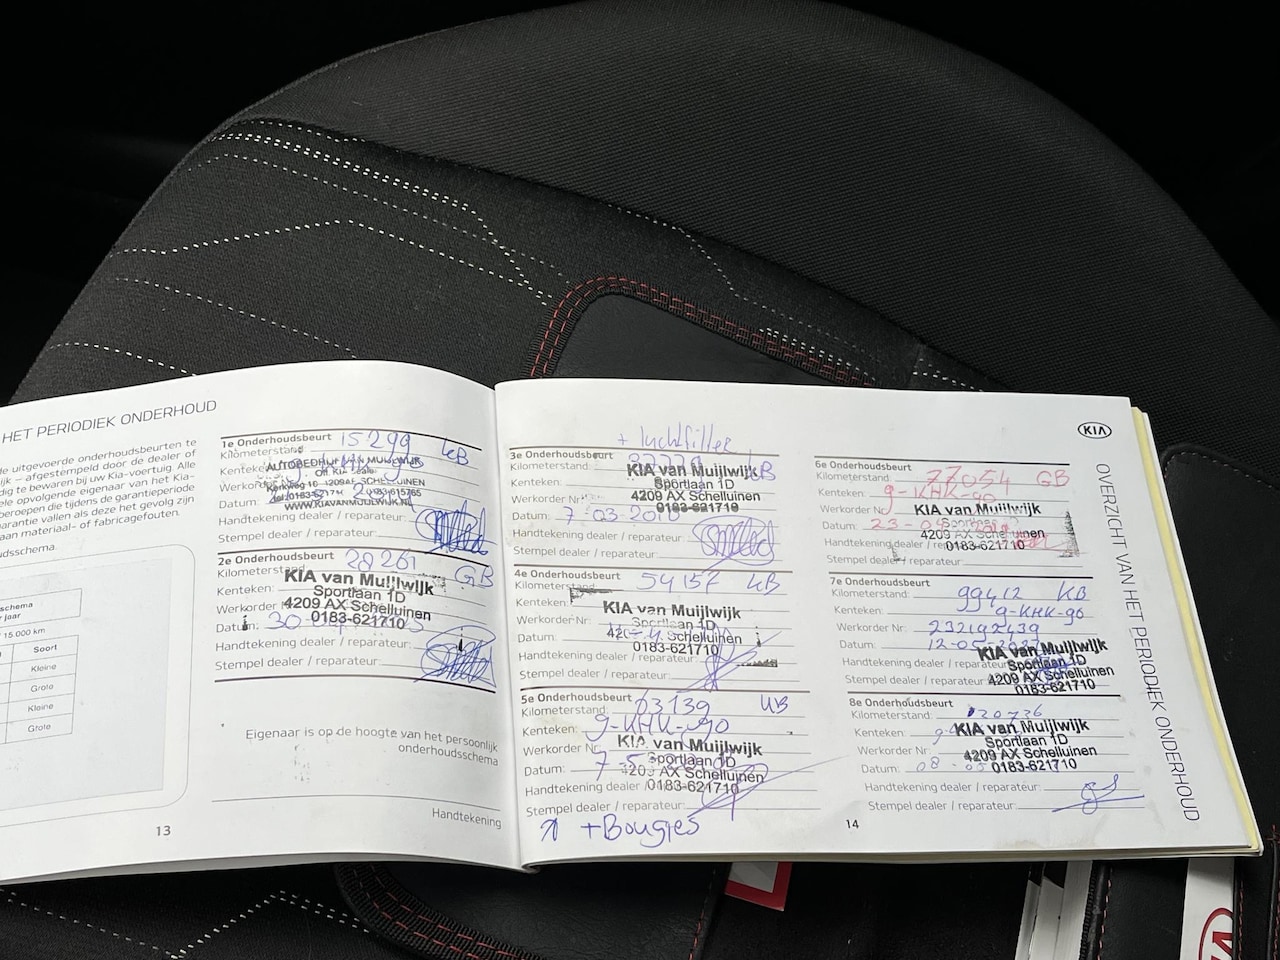 HET PERIODIEK ONDERHOUD
de uitgevoerde onderhoudsbeurten te
jk – afgestempeld door de dealer of
dig te bewaren bij uw Kia-voertuig. Alle
ele opvolgende eigenaar van het Kia-
beroepen die tijdens de garantieperiode
arantie vallen als deze het gevolg zijn
aan materiaal- of fabricagefouten.
udsschema
schema
r jaar
15.000 km
Soort
Kleine
Grote
Kleine
Grote
13
1e Onderhoudsbeurt 15299 KB
Kilometerstand
Kenteken
AUTOBEDRIJF VAN MUIJLWIJK
Kerkweg 10
SCHELLUINEN
WWW.KIAVANMUIJLWIJK.NL
Datum:
Handtekening dealer / reparateur:
Stempel dealer / reparateur:
2e Onderhoudsbeurt 28261 GB
Kilometerstand
KIA van Muijlwijk
Kenteken:
Sportlaan 1D
Werkorder
4209 AX Schelluinen
Datum: 30
0183-621710
Handtekening dealer / reparateur:
Stempel dealer / reparateur:
Eigenaar is op de hoogte van het persoonlijk
onderhoudsschema
Handtekening
+ luchtfilter
3e Onderhoudsbeurt
Kilometerstand: KB
KIA van Muijlwijk
Kenteken:
Sportlaan 1D
Werkorder Nr
4209 AX Schelluinen
0183-621710
Datum: 7-03-2018
Handtekening dealer / reparateur:
Stempel dealer / reparateur:
4e Onderhoudsbeurt 54157 KB
Kilometerstand
Kenteken:
KIA van Muijlwijk
Werkorder Nr:
Sportlaan 1D
Datum:
Schelluinen
0183-621710
Handtekening dealer / reparateur:
Stempel dealer / reparateur:
5e Onderhoudsbeurt 63139 KB
Kilometerstand:
Kenteken: 9-KHK-90
Werkorder Nr:
KIA van Muijlwijk
Sportlaan 1D
Datum: 7-5
4209 AX Schelluinen
Handtekening dealer /
0183-621710
Stempel dealer / reparateur:
+Bougies
6e Onderhoudsbeurt 77054 GB
Kilometerstand:
Kenteken: 9-KHK-90
Werkorder Nr:
KIA van Muijlwijk
Datum: 23-
Sportlaan
4209 AX Schelluinen
Handtekening dealer /
0183-621710
Stempel dealer / reparateur:
7e Onderhoudsbeurt
Kilometerstand: 99412 KB
Kenteken: 9-KHK-90
Werkorder Nr: 232192439
Datum: 12-05-2023
KIA van Muijlwijk
Handtekening dealer / reparateur
Sportlaan 1D
Stempel dealer / reparateur
4209 AX Schelluinen
0183-621710
8e Onderhoudsbeurt
Kilometerstand: 120726
Kenteken:
KIA van Muijlwijk
Werkorder Nr:
Sportlaan 1D
4209 AX Schelluinen
Datum: 08-
0183-621710
Handtekening dealer / reparateur:
Stempel dealer / reparateur:
14
KIA
OVERZICHT VAN HET PERIODIEK ONDERHOUD